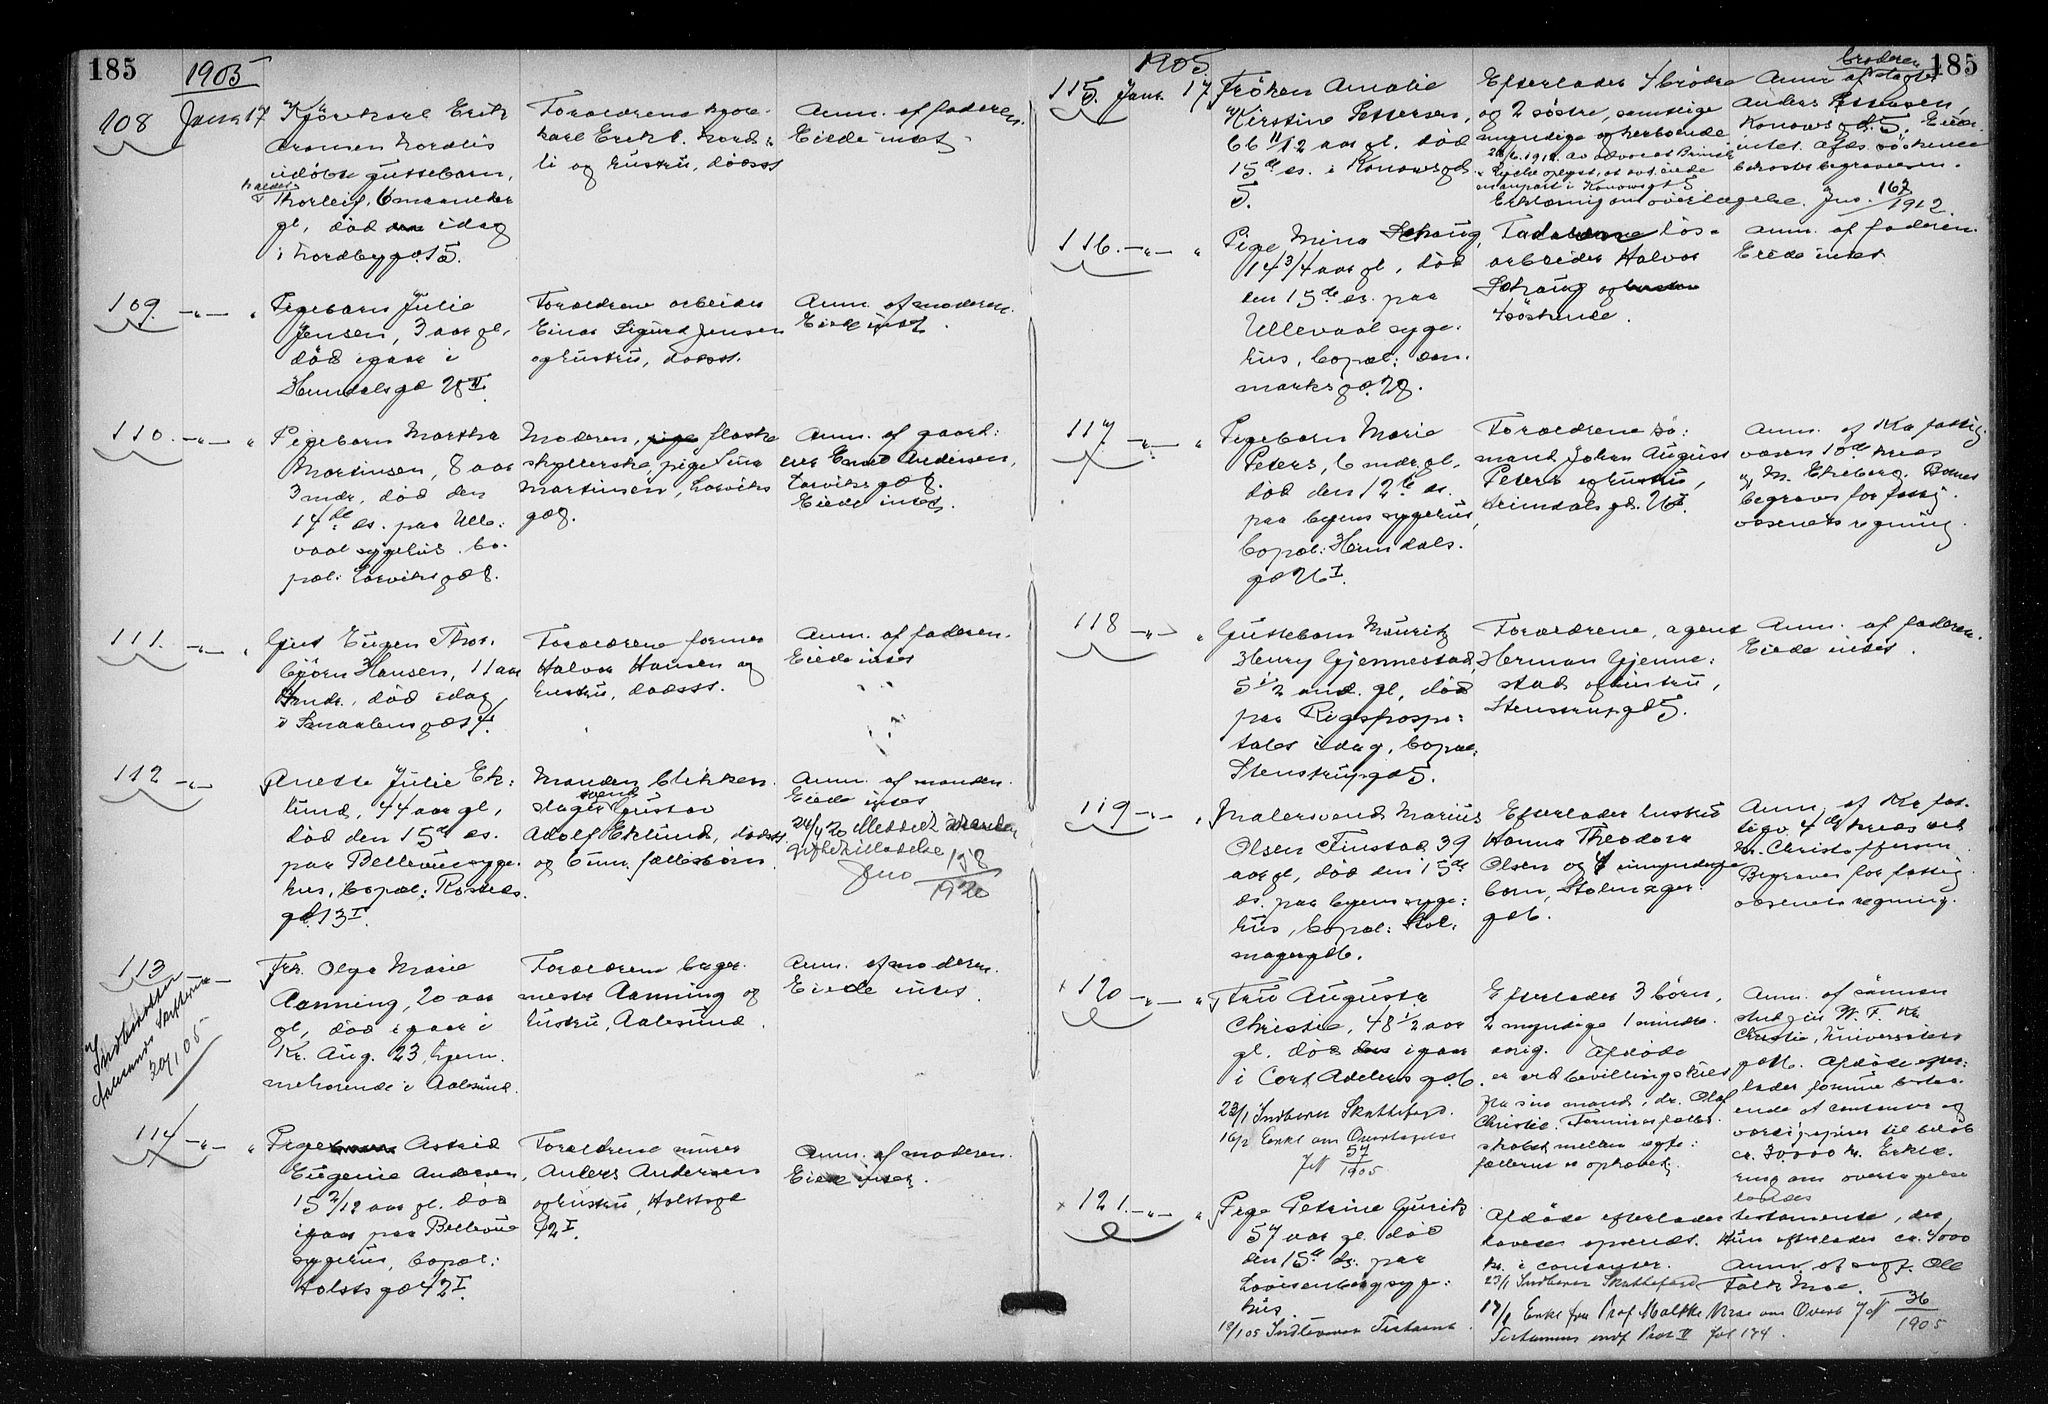 185
1905
108 Janr. 17 Kjørekarl Erik
Aronsen Nordlis
udøbte guttebarn,
Thorleif, 6 maaneder
gl, død idag
i Nordbygd. 15.
Forældrene kjøre-
karl Erik A. Nord-
li og hustru, dødsst
Anm. af faderen.
Eiede intet
109. -"- " Pigebarn Julie
Jensen, 3 aar gl,
død igaar i
Heimdalsgd 28 II.
Forældrene arbeider
Einar Sigurd Jensen
og hustru, dødsst.
Anm. af moderen.
Eiede intet.
110. -"- " Pigebarn Martha
Martinsen, 8 aar
3 mdr, død den
14de ds. paa Ulle-
vaal sygehus. bo-
pæl: Larviksgd 8.
Moderen, flaske
skyllerske, pige Lina
Martinsen, Larviks
gd 8.
Anm. af gaard-
eier Andersen,
Larviksgd 8.
Eiede intet.
111. -"- " Gut Eugen Thor-
bjørn Hansen, 11 aar
mdr., død idag
i Smaalensgd
Forældrene former
Halvor Hansen og
hustru, dødsst.
Anm. af faderen.
Eiede intet
112 -"- Anette Julie Ek-
lund, 44 aar gl,
død den 15de ds.
paa Bellevue syge-
hus, bopæl: Rosteds
gd. 13 I.
Manden blikken-
slagersvend Gustav
Adolf Eklund, dødsst
og 6 umr. fællesbørn.
Anm. af manden.
Eiede intet
24/4 20 Meddelt
skifetilladelse
Jno 158
1920
113 -"- Frk. Olga Marie
Aanning, 20 aar
gl, død igaar i
Kr. Aug. 23, hjem-
mehørende i Aalesund.
Forældrene bager-
mester Aanning og
hustru, Aalesund.
Anm. af moderen.
Eiede intet
Indberettet
Aalesunds Skifteret
20/1 05
114 -"- " Pige Astrid
Eugenie Andersen,
15 2/12 aar gl. død
igaar paa Bellevue
sygehus, bopæl:
Holsts gd 42 I.
Forældrene murer
Anders Andersen
og hustru, Holstsgd
42 I.
Anm. af moderen.
Eiede intet.
185
1905
115. Janr. 17. Frøken Amalie
Kirstine Pettersen,
66 11/12 aar gl. død
15de ds. i Konowsgd
5.
Efterlader 4 brødre
og 2 søstre, samtlige
myndige og herboende
Erklæring om overtagelse. Jno. 167
1912.
broderen
Anm. af
Anders Pettersen,
Konowsgd. 5. Eiede
intet. Afds. søskende
bekoster begravelsen.
116. -"- " Pige Mina Skhaug,
14 3/4 aar gl, død
den 15de ds. paa
Ullevaal syge-
hus, bopæl: Dan-
marksgd. 28.
løs-
arbeider Halvor
og
4 søskende.
Anm. af faderen.
Eiede intet
117. -"- " Pigebarn Marie
Peters, 6 mdr. gl.
død den 12te ds.
paa byens sygehus,
bopæl: Heimdals-
gd 26 I.
Forældrene sø-
mand Johan August
Peters og hustru,
Heimdalsgd. 26 I.
Anm. af Kra fattig-
væsen 10de kreds
v. M. Ekeberg. Barnet
begraves for fattig-
væsenets regning.
118 -"- " Guttebarn Mauritz
Henry Gjennestad,
5 1/2 mnd. gl, død
paa Rigshospi-
talet idag, bopæl:
Stenstrupgd 5.
Forældrene, agent
Herman Gjenne-
stad og hustru,
Stenstrupgd 5.
Anm. af faderen.
Eiede intet.
119 -"- " Malersvend Marius
Olsen Finstad, 39
aar gl, død den 15de
ds. paa byens syge-
hus, bopæl: Stol-
magergd 6.
Efterlader hustru
Hanna Theodora
Olsen og 4 umyndige
børn, Stolmager-
gd 6.
Anm. af Kra fat-
tigv. 4de kreds ved
Hr. Christoffersen
Begraves for fattig-
væsenets regning.
120 -"- " Fru Augusta
Christie, 48 1/2 aar
gl. død igaar
i Cort Adelers gd. 6.
23/1 Indberer Skatteford.
16/2 Erkl om Overtagelse
JN 57
1905
Efterlader 3 børn,
2 myndige 1 mindre-
aarig. Afdøde
er ved bevilling skilt
fra sin mand, dr. Olaf
Christie. Formuesfælles-
skabet mellem ægte-
fællerne er ophævet.
Anm. af sønnen
stud. jur W. F. K.
Christie, Universitets
gd. Afdøde efter-
lader formue bestaa-
ende af contanter og
værdipapirer til beløb
ca. 30.000 kr. Erklæ-
ring om overtagelse
loves
121. -"- " Pige Petrine Gurik
57 aar gl. død
den 15de ds. paa
Lovisenberg syge-
hus.
18/1 05 Indleveret Testament
Afdøde efterlader testamente, der
haves oprendt. Hun efterlader ca. 4000
kr. i contanter. Anm. af Ole
Falk Moe.
23/1 Indberer Skatteford.
17/1 Erkl fra Prof Moltke Moe om Overt JN 36
1905
Testamens indf Prot II fol 174.